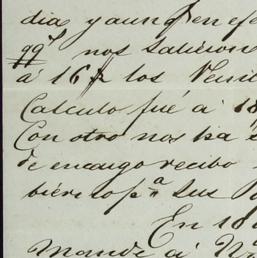 dia y aunq en efe
qq.s nos salieron
á 16 los Veni
Calculo fué á 18
Con otro nos ha
de encargo recibo
p.a sus
En 18
Mande á